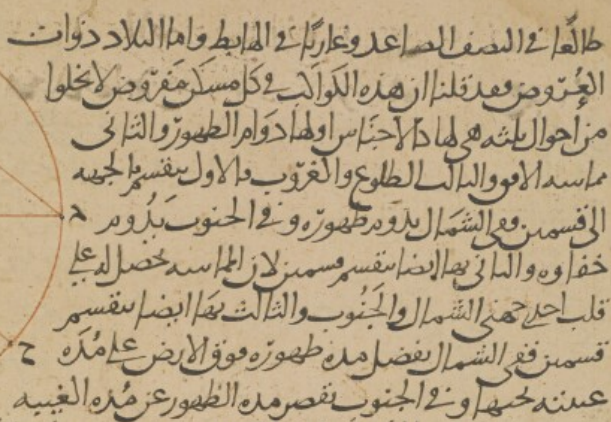 طالعًا في النصف الصاعد وغاربًا في الهابط واما البلاد ذوات
العُروض فقد قلنا ان هذه الكواكب في كل مسكن مفروض لا يخلوا
من احوال ثلثه هي لها كالاجناس اولها دوام الظهور والثاني
مماسه الافق والثالث الطلوع والغروب فالاول ينقسم بالجهه
الى قسمين ففي الشمال يدوم ظهوره وفي الجنوب يدوم
خفاوه والثاني بها ايضا ينقسم قسمين لان المماسه تحصل له على
قلب احدى جهتي الشمال والجنوب والثالث بها ايضا ينقسم
قسمين ففي الشمال يفضل مده ظهوره فوق الارض على مُدّه
ح
غيبته تحتها وفي الجنوب تقصر مده الظهور عن مُده الغيبه